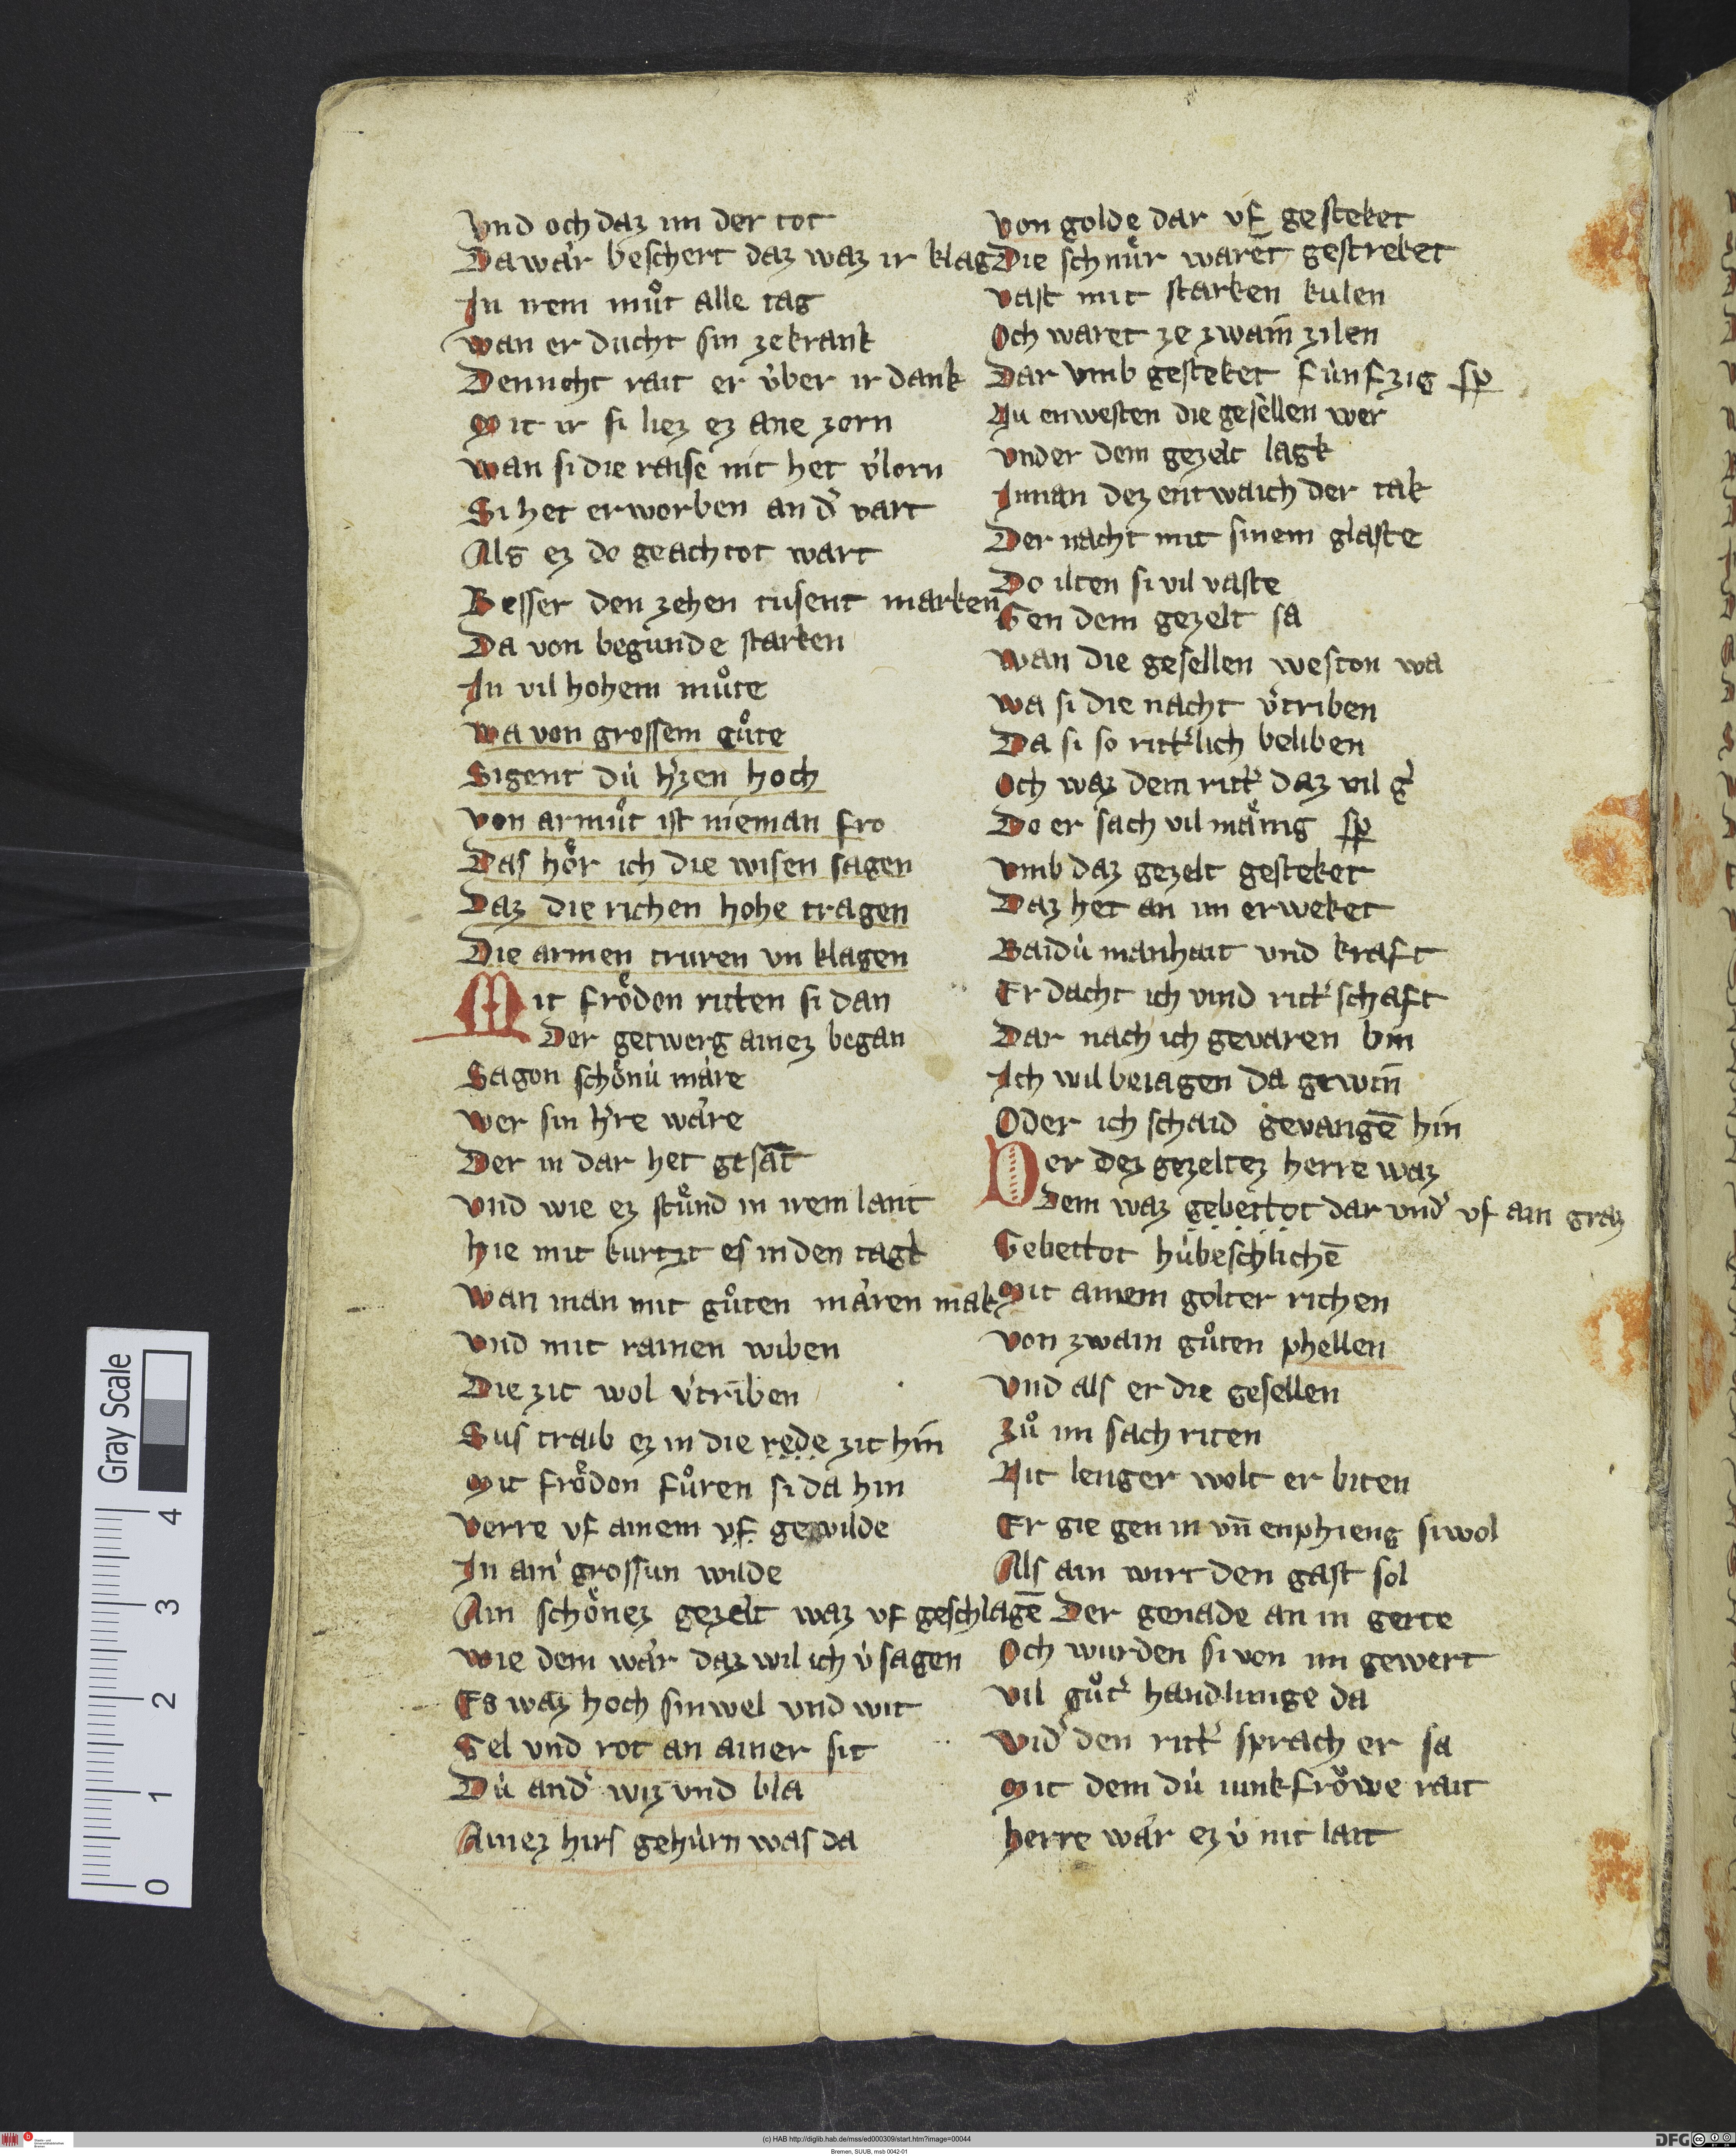 Vnd och daz im der tot
Da wår beschert daz waz ir klag
In irem můt alle tag
Wan er ducht sin ze krank
Dennicht rait er v̇ber ir dank
Mit ir si liez ez ane zorn
Wan si die raise nit het v͛lorn
Si het erworben an d͛ vart
Als ez do geachtot wart
Besser den zehen tusent marken
Da von begunde starken
In vil hohem můte
Wa von grossem gůte
Sigent dú h͛zen hoch
Von armůt ist nieman fro
Das hôr ich die wisen sagen
Daz die richen hohe tragen
Die armen truren vn klagen
Mit frôdon ritten si dan
Der getwerg ainez began
Sagon schônú måre
Wer sin h͛re wåre
Der in dar het gesāt
Vnd wie ez stůnd in irem lant
Hie mit kurtzt es in den tagk
Wan man mit gůten måren mak
Vnd mit rainen wiben
Die zit wol v͛triben
Sus traib ez in die rede zit hin
Mit frôdon fůren si da hin
Verre vf ainem vf gewilde
In ain͛ grossun wilde
Ain schônez gezelt waz vf geschlagē
Wie dem wår daz wil ich v́ sagen
Es waz hoch sinwel vnd wit
Gel vnd rot an ainer sit
Dú and͛ wiz vnd bla
Ainez hirs gehúrn was da
Von golde dar vf gesteket
Die schnůr warēt gestreket
Vast mit starken kulen
Och waret ze zwain zilen
Dar vmb gesteket fúnfzig sp͛
Nu enwesten die gesellen wer
Vnder dem gezelt lagk
Innan dez entwaich der tak
Der nacht mit sinem glaste
Do ilten si vil vaste
Gen dem gezelt sa
Wan die gesellen weston wa
Wa si die nacht v͛triben
Da si so ritt͛lich beliben
Och waz dem ritt͛ daz vil g͛
Do er sach vil månig sp͛
Vmb daz gezelt gesteket
Daz het an im erweket
Baidú manhait vnd kraft
Er dacht ich vind ritt͛schaft
Dar nach ich gevaren bin
Ich wil beiagen da gewin̄
Oder ich schaid gevangē hin
Der dez gezeltez herre waz
Dem waz gebettot dar vnd͛ vf ain graz
Gebettot húbeschlichē
Mit ainem golter richen
Von zwain gůten phellen
Vnd als er die gesellen
Zů im sach riten
Nit lenger wolt er biten
Er gie gen in vn̄ enphieng si wol
Als ain wirt den gast sol
Der genade an in gerte
Och wurden si von im gewert
Vil gůt͛ handlunge da
Vid͛ den ritt͛ sprach er sa
Mit dem dú iunkfrôwe rait
Herre wår ez v́ nit lait
Gray Scale
4
3
2
1
0
(c) HAB http://diglib.hab.de/mss/ed000309/start.htm?image=00044
Bremen, SUUB, msb 0042-01
DFG